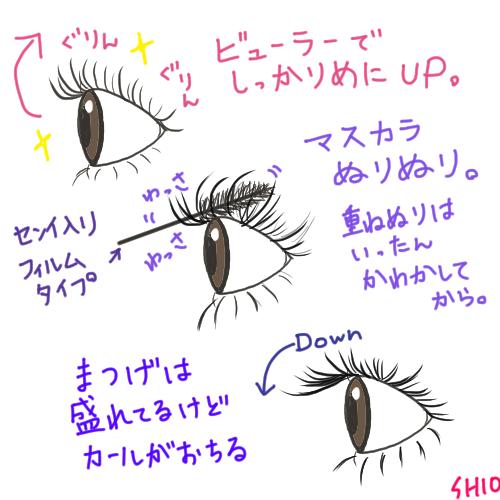 ぐりん
ぐりん
ビューラーで
しっかりめにUP。
マスカラ
ぬりぬり。
わっさ
わっさ
センイ入り
フィルム
タイプ
重ねぬりは
いったん
かわかして
から。
Down
まつげは
盛れてるけど
カールがおちる
SHIO